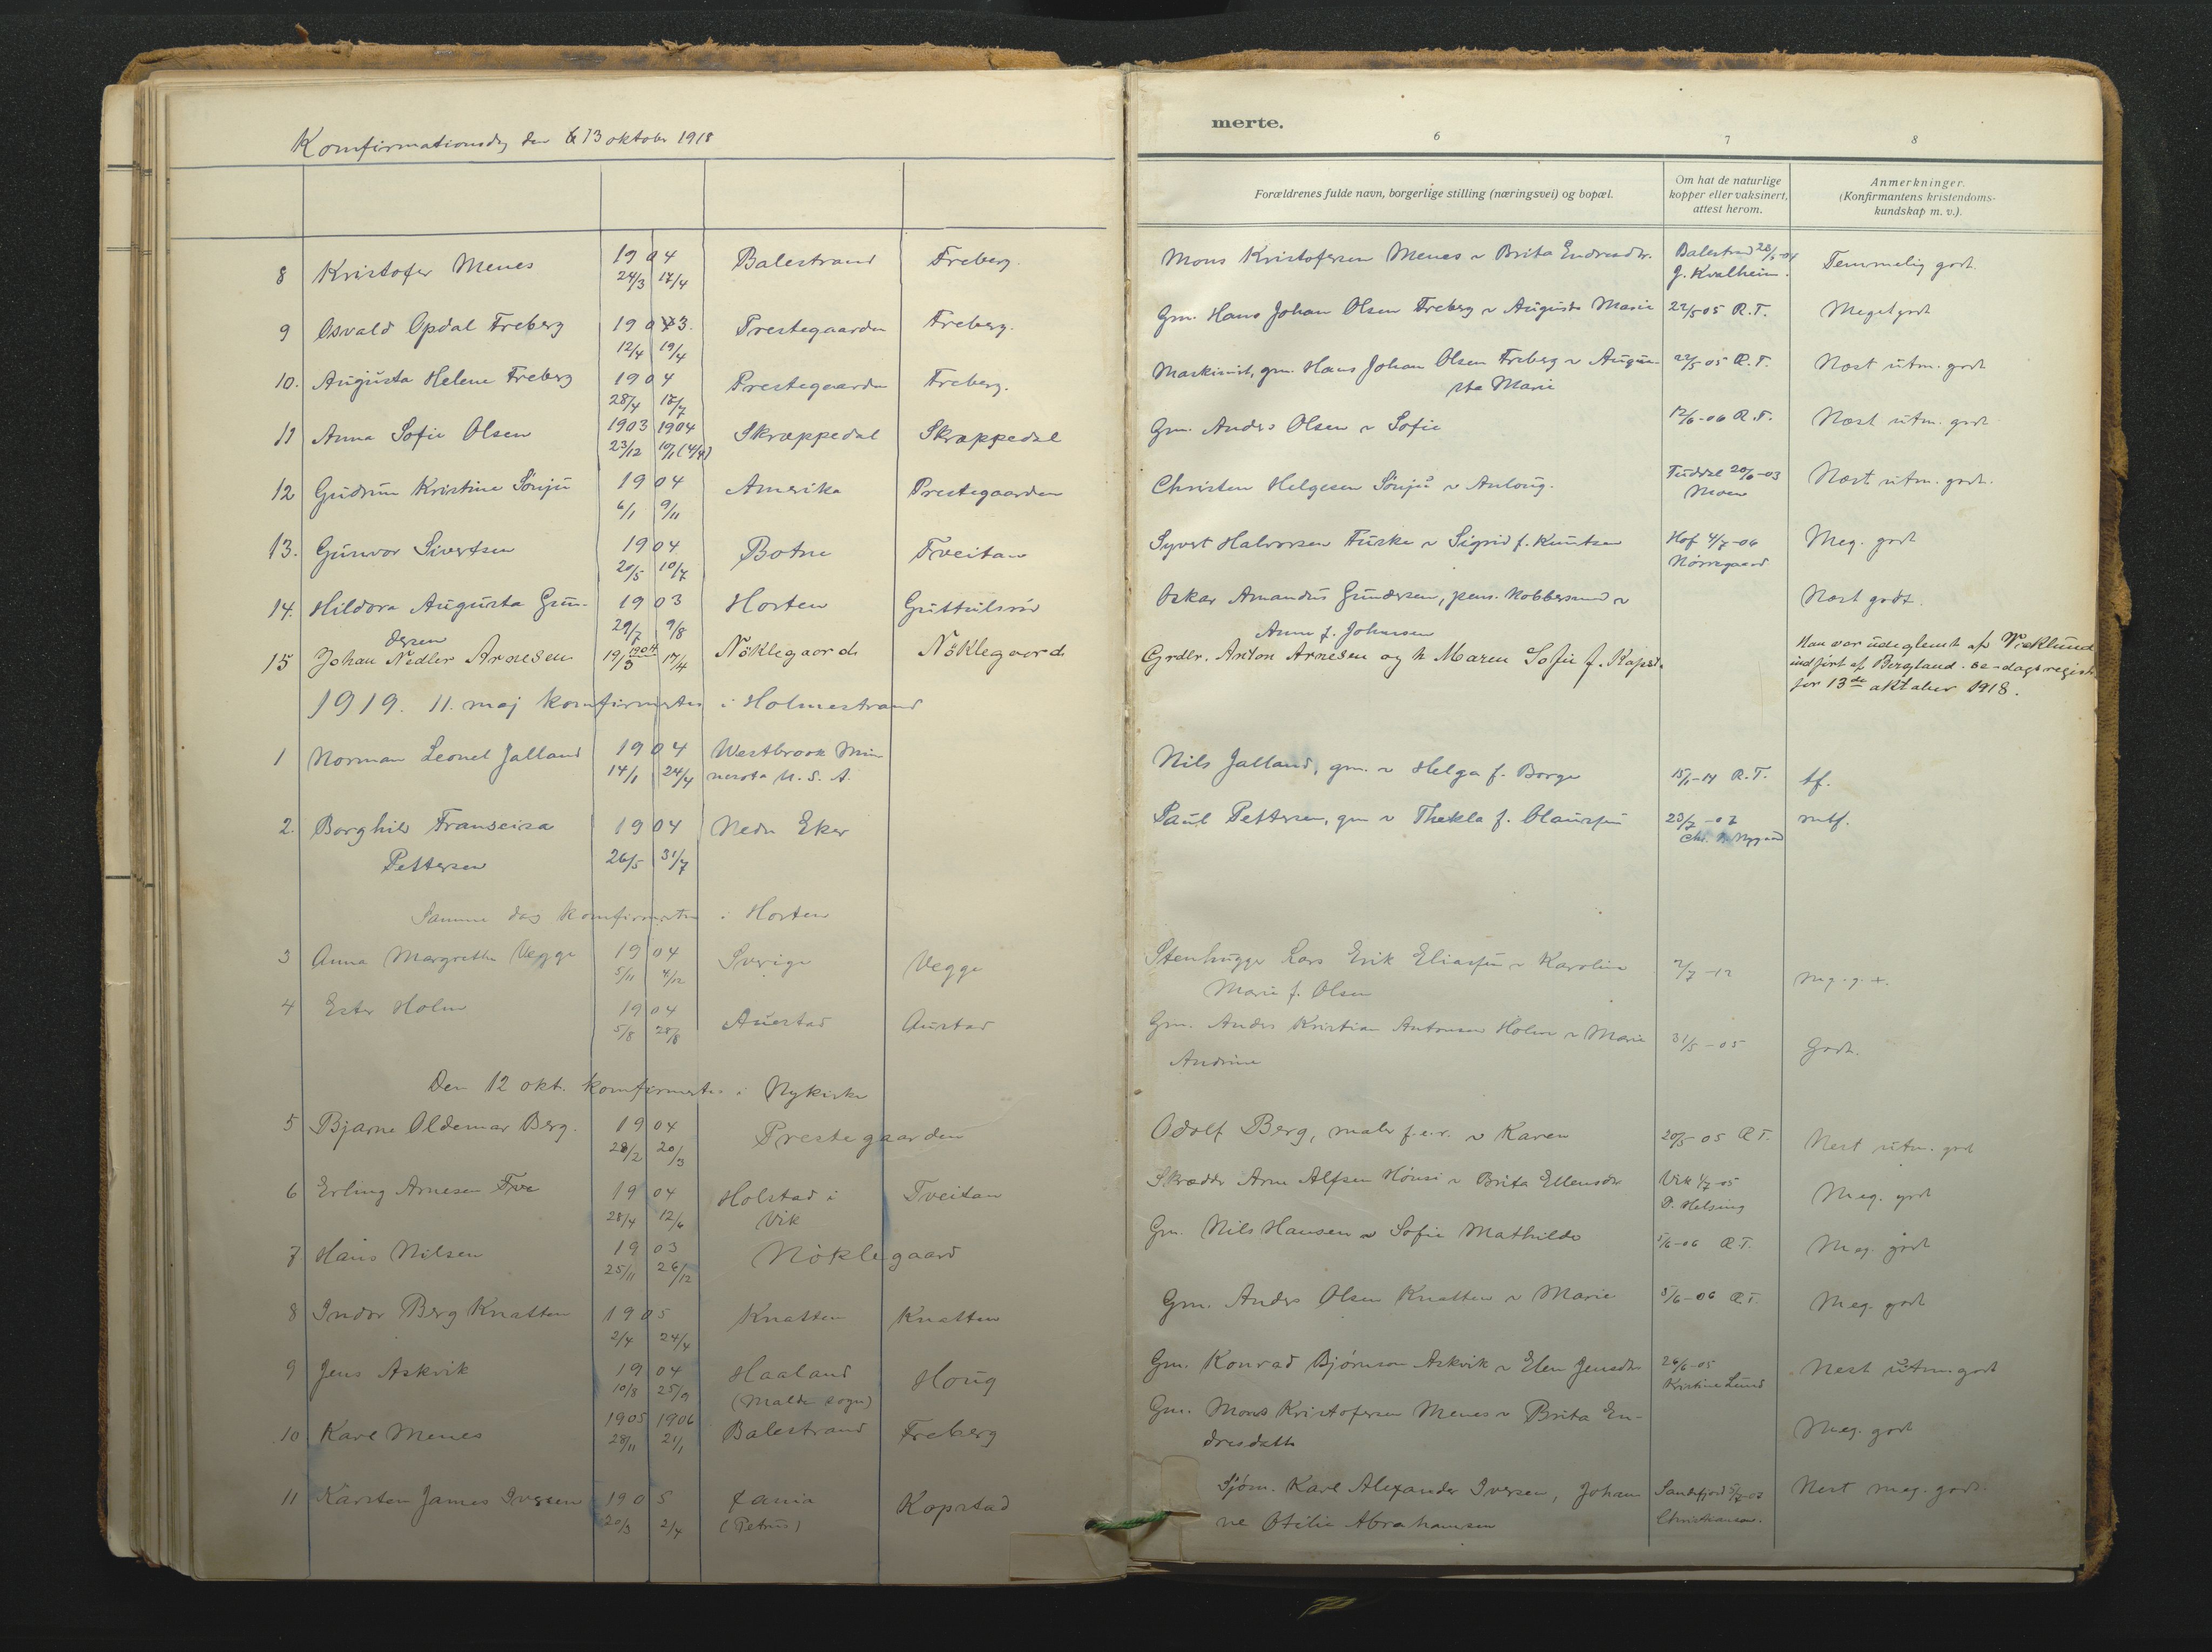 Komfirmationsdag den 13 oktober 1918
merte.
6 7 8
Forældrenes fulde navn, borgerlige stilling (næringsvei) og bopæl.
Om hat de naturlige
kopper eller vaksinert,
attest herom.
Anmerkninger.
(Konfirmantens kristendoms-
kundskap m. v.).
8 Kristofer Menes 1904 24/3 17/4 Balestrand Freberg. Mons Kristofersen Menes & Brita Endresdtr. Balestrand 28/6-04
J. Kvalheim. Temmelig godt.
9 Osvald Opdal Freberg 1903. 12/4 19/4 Prestegaarden Freberg. Gm. Hans Johan Olsen Freberg & Augusta Marie 22/5 05 R.T. Meget godt
10. Augusta Helene Freberg 1904 28/4 17/7 Prestegaarden Freberg. Maskinist, gm. Hans Johan Olsen Freberg & Augu-
sta Marie 22/5 05 R.T. Næst utm. godt
11 Anna Sofie Olsen 1903 1904 23/12 10/1 (4/4) Skræppedal Skræppedal Gm. Anders Olsen & Sofie 12/6-06 R.T. Næst utm. godt
12 Gudrun Kristine Sönju 1904 6/1 9/11 Amerika Prestegaarden Christen Helgesen Sönju & Anloug. Tuddal 20/6-03
Moen Næst utm. godt.
13. Gunvor Sivertsen 1904 20/5 10/7 Botne Tveitan Syvert Halvorsen Fuske & Sigrid f. Knutsen Hof 4/7-06
Nörregaard Meg. godt
14. Hildora Augusta Gun-
dersen 1903 29/7 9/8 Horten Guttulsröd Oskar Amandus Gundersen, pens. kobbersmed &
Anna f. Johansen Næst godt.
15 Johan Nedler Arnesen 1904 19/3 17/4 Nöklegaard Nöklegaard Grdbr. Anton Arnesen og h Maren Sofie f. Kapst. Han var udeglemt af Wieklund
indført af Bergland. se dagsregist.
for 13de oktober 1918.
1919. 11. maj komfirmertes i Holmestrand
1 Norman Leonel Jalland 1904 14/1 24/4 Westbrook Min-
nesota U. S. A. Nils Jalland, gm. & Helga f. Borge 15/1-14 R.T. tf.
2. Borghild Franseisa
Pettersen 1904 26/5 31/7 Nedre Eker Paul Pettersen, gm & Thekla f. Olaussen 23/7-07 mtf.
Samme dag komfirmertes i Horten
3 Anna Margrethe Vegge 1904 5/11 4/12 Sverige Vegge Stenhugger Lars Erik Eliassen & Karoline
Marie f. Olsen 2/7-12 Mg. g. +.
4 Ester Holm 1904 5/8 28/8 Austad Austad Gm. Anders Kristian Antonsen Holm & Marie
Andrine 31/5-05 Godt.
Den 12 okt. komfirmertes i Nykirke
5 Bjarne Oldemar Berg. 1904 28/2 20/3 Prestegaarden Adolf Berg, maler f.e.r. & Karen 20/5-05 R T. Nest utm. godt
6 Erling Arnesen 1904 28/4 12/6 Holstad i
Vik Tveitan Skrædder Arne Alfsen Hönsi & Brita Ellensdtr Vik 1/7-05
P. Helsing Meg. godt
7 Hans Nilsen 1903 25/11 26/12 Nöklegaard Gm. Nils Hansen & Sofie Mathilde 5/6-06 R.T. Meg. godt
8 Indor Berg Knatten 1905 2/4 24/4 Knatten Knatten Gm. Anders Olsen Knatten & Marie 5/6-06 R.T. Meg. godt
9 Jens Askvik 1904 10/8 25/9 Haaland
(Malde sogn) Houg Gm. Konrad Bjørnson Askvik & Elen Jensdtr 26/6-05
Kristine Lund Nest utm. godt
10 Karl Menes 1905 1906 28/11 21/1 Balestrand Freberg Gm. Mons Kristofersen Menes & Brita En-
dresdatter Meg. godt
11 Karsten James Iversen 1905 20/3 2/4 (Petrus) Kopstad Sjøm. Karl Alexander Iversen, Johan-
ne Otilie Abrahamsen Sandefjord 5/7-07
Christiansen. Nest meg. godt.